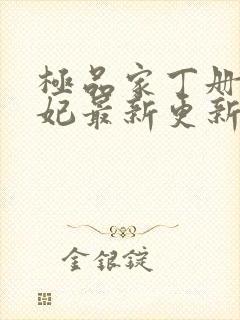 極品家丁册
妃最新更新
金銀錠